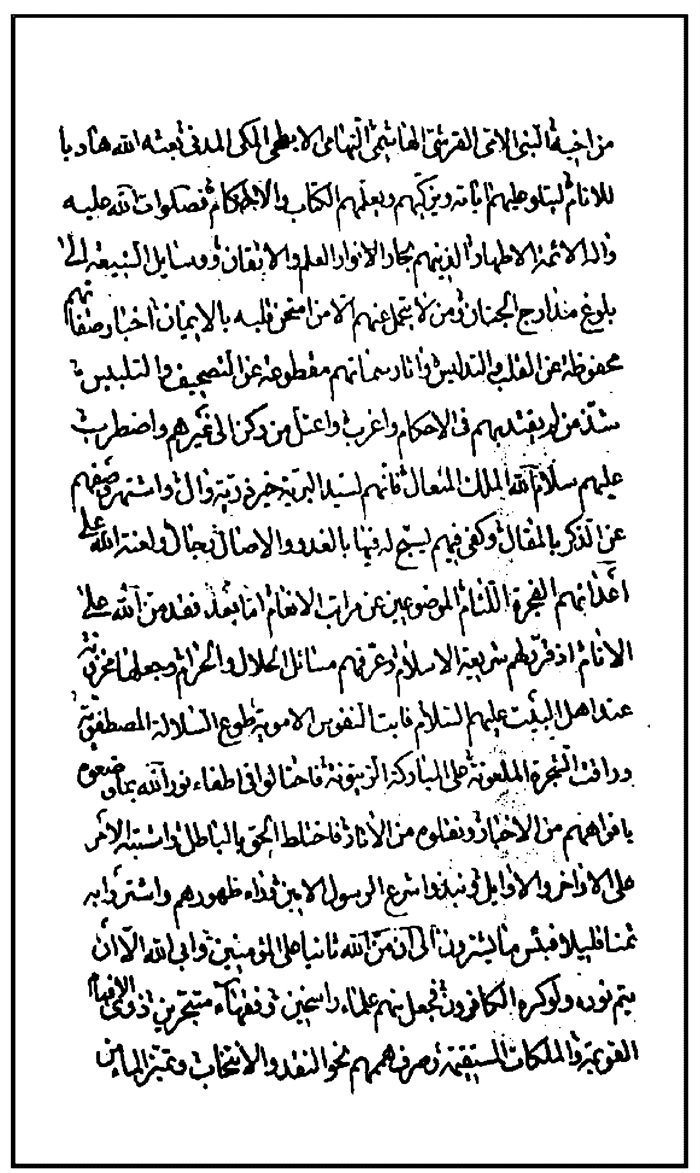 من اخيه النبي الامي القرشي الهاشمي التهامي الابطحي المكي المدني بعثه الله هاديا
للانام ليتلو عليهم اياته ويزكيهم ويعلمهم الكتاب والاحكام فصلوات الله عليه
واله الائمة الاطهار الذينهم بحار الانوار العلم والاتقان ووسايل الشيعة الى
بلوغ مدارج الجنان ومن لا يتحمل عنهم الا من امتحن قلبه بالايمان اخبار صفاتهم
محفوظة عن القلب والتدليس واثار سماتهم مقطوعة عن التصحيف والتلبيس
شذ من لم يقتد بهم في الاحكام واغرب واعتل من ركن الى غيرهم واضطرب
عليهم سلام الله الملك المتعال فانهم لسيد البرية خير ذرية وال واشتهر وصفهم
عن الذكر بالمقال وكفى فيهم يسبح له فيها بالغدو والاصال رجال ولعنة الله على
اعدائهم الفجرة اللئام الموضوعين عن مراتب الانعام اما بعد فقد من الله على
الانام اذ قرر لهم شريعة الاسلام وعرفهم مسائل الحلال والحرام وجعلها مخزونة
عند اهل البيت عليهم السلام فابت النفوس الاموية طوع السلالة المصطفوية
وراقت الشجرة الملعونة على المباركة الزيتونة فاحتالوا في اطفاء نور الله بما وضعوه
بافواههم من الاخبار ونقلوه من الاثار فاختلط الحق بالباطل واشتبه الامر
على الاواخر والاوايل ونبذوا شرع الرسول الامين وراء ظهورهم واشتروا به
ثمنا قليلا فبئس ما يشترون الى ان من الله ثانيا على المؤمنين وابى الله الا ان
يتم نوره ولو كره الكافرون فجعل بينهم علماء راسخين وفقهاء متبحرين ذوي الافهام
القويمة والملكات المستقيمة وصرف هممهم نحو النقد والانتخاب وتميز الماء من